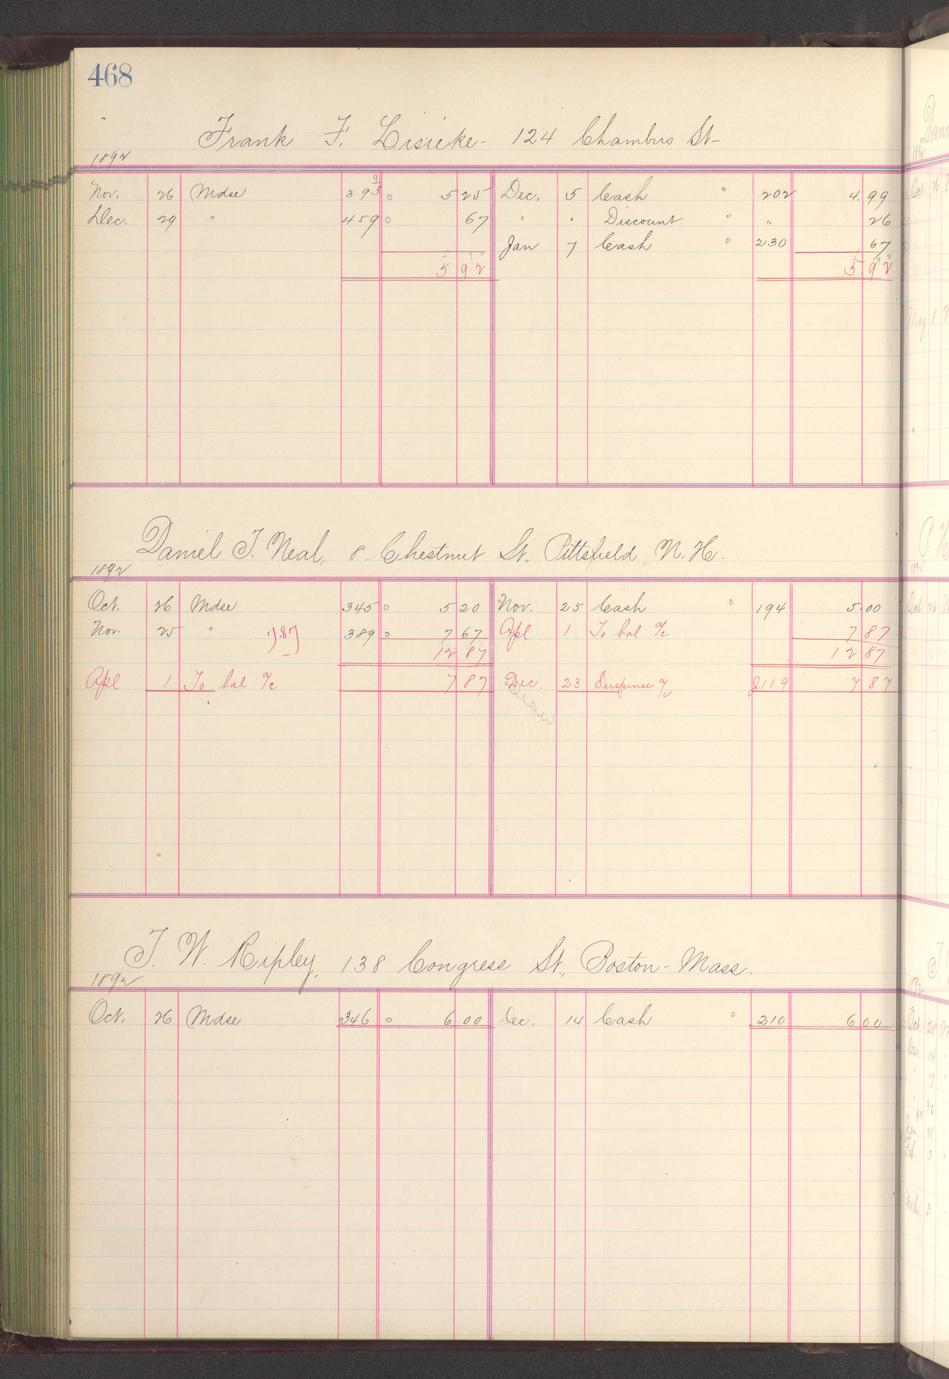 468
Frank F. Lisieke - 124 Chambers St -
1892
Nov. 26 Mdse 393 5 25 Dec. 5 Cash 202 4 99
Dec. 29 " 459 67 " " Discount " 26
Jan 7 Cash 230 67
5 92 5 92
Daniel T. Neal, 8 Chestnut St. Pittsfield, N. H.
1892
Oct. 26 Mdse 345 5 20 Nov. 25 Cash 194 5 00
Nov 25 " 7.87 389 7 67 Apl 1 To bal a/c 7 87
12 87 12 87
Apl 1 To bal a/c 7 87 Dec. 23 Suspense a/c J119 7 87
T. W. Ripley, 138 Congress St., Boston - Mass.
1892
Oct. 26 Mdse 346 6 00 Dec. 14 Cash 210 6 00